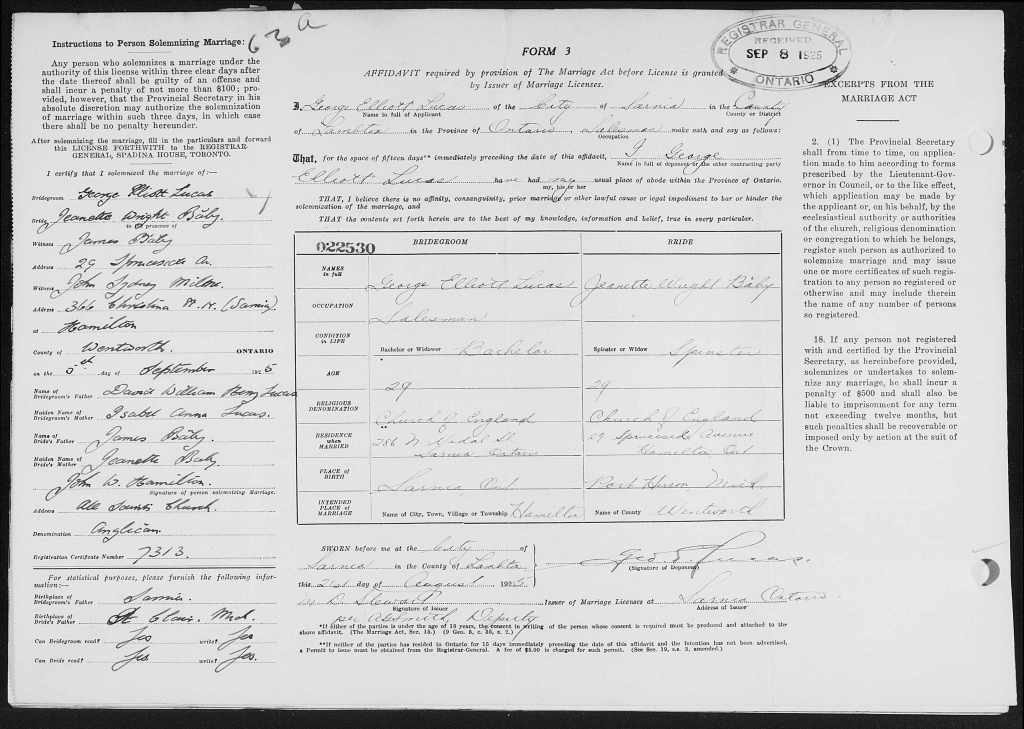 63a
Instructions to Person Solemnizing Marriage:
Any person who solemnizes a marriage under the
authority of this license within three clear days after
the date thereof shall be guilty of an offense and
shall incur a penalty of not more than $100; pro-
vided, however, that the Provincial Secretary in his
absolute discretion may authorize the solemnization
of marriage within such three days, in which case
there shall be no penalty hereunder.
After solemnizing the marriage, fill in the particulars and forward
this LICENSE FORTHWITH to the REGISTRAR-
GENERAL, SPADINA HOUSE, TORONTO.
I certify that I solemnized the marriage of:—
Bridegroom George Elliott Lucas
Bride Jeanette Wright Băby
in presence of
Witness James Baby
Address 29 Spruceside Av.
Witness John Sydney Milne
Address 366 Christina St. N. (Sarnia).
at Hamilton
County of Wentworth. ONTARIO
on the 5th day of September 1925
Name of Bridegroom's Father David William Henry Lucas
Maiden Name of Bridegroom's Mother Isabel Anna Lucas.
Name of Bride's Father James Băby.
Maiden Name of Bride's Mother Jeanette Băby.
John W. Hamilton.
Signature of person solemnizing Marriage.
Address All Saints Church.
Denomination Anglican
Registration Certificate Number 7313.
For statistical purposes, please furnish the following infor-
mation:—
Birthplace of Bridegroom's Father Sarnia.
Birthplace of Bride's Father St Clair, Mich.
Can Bridegroom read? Yes write? Yes
Can Bride read? Yes. write? Yes.
FORM 3
AFFIDAVIT required by provision of The Marriage Act before License is granted
by Issuer of Marriage Licenses.
I, George Elliott Lucas of the City of Sarnia in the County
Name in full of Applicant County or District
of Lambton in the Province of Ontario, Salesman make oath and say as follows:
Occupation
That, for the space of fifteen days** immediately preceding the date of this affidavit, I George
Name in full of deponent or the other contracting party
Elliott Lucas have had my usual place of abode within the Province of Ontario.
my, his or her
THAT, I believe there is no affinity, consanguinity, prior marriage or other lawful cause or legal impediment to bar or hinder the
solemnization of the marriage, and
THAT the contents set forth herein are to the best of my knowledge, information and belief, true in every particular.
022530 BRIDEGROOM BRIDE
NAMES in full George Elliott Lucas Jeanette Wright Băby
OCCUPATION Salesman
CONDITION in LIFE Bachelor or Widower Bachelor Spinster or Widow Spinster
AGE 29 29
RELIGIOUS DENOMINATION Church of England Church of England
RESIDENCE when MARRIED 286 N. St. 29 Spruceside Avenue
Sarnia Ontario Hamilton Ont
PLACE OF BIRTH Sarnia Ont Port Huron, Mich.
INTENDED PLACE OF MARRIAGE Name of City, Town, Village or Township Hamilton Name of County Wentworth
SWORN before me at the City of
Sarnia in the County of Lambton
this 21st day of August 1925
Geo. E. Lucas.
(Signature of Deponent)
D. Stewart Issuer of Marriage Licenses at Sarnia Ontario.
Signature of Issuer Address of Issuer
per Deputy
*If either of the parties is under the age of 18 years, the consent in writing of the person whose consent is required must be produced and attached to the
above affidavit. (The Marriage Act, Sec. 15.) (9 Geo. 5, c. 35, s. 2.)
**If neither of the parties has resided in Ontario for 15 days immediately preceding the date of this affidavit and the intention has not been advertised,
a Permit to issue must be obtained from the Registrar-General. A fee of $5.00 is charged for such permit. (See Sec. 19, s.s. 3, amended.)
REGISTRAR GENERAL
RECEIVED
SEP 8 1925
ONTARIO
EXCERPTS FROM THE
MARRIAGE ACT
2. (1) The Provincial Secretary
shall from time to time, on applica-
tion made to him according to forms
prescribed by the Lieutenant-Gov-
ernor in Council, or to the like effect,
which application may be made by
the applicant or, on his behalf, by the
ecclesiastical authority or authorities
of the church, religious denomination
or congregation to which he belongs,
register such person as authorized to
solemnize marriage and may issue
one or more certificates of such regis-
tration to any person so registered or
otherwise and may include therein
the name of any number of persons
so registered.
18. If any person not registered
with and certified by the Provincial
Secretary, as hereinbefore provided,
solemnizes or undertakes to solem-
nize any marriage, he shall incur a
penalty of $500 and shall also be
liable to imprisonment for any term
not exceeding twelve months, but
such penalties shall be recoverable or
imposed only by action at the suit of
the Crown.